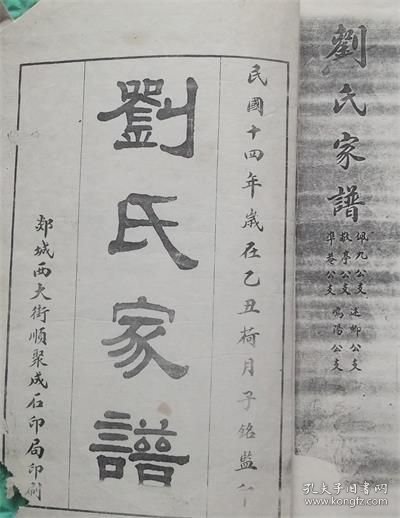 劉氏家譜
佩九公支 述卿公支
敬亭公支 鳴陽公支
準菴公支
民國十四年歲在乙丑荷月子銘監印
劉氏家譜
郯城西大街順聚成石印局印刷
孔夫子旧书网
www.kongfz.com